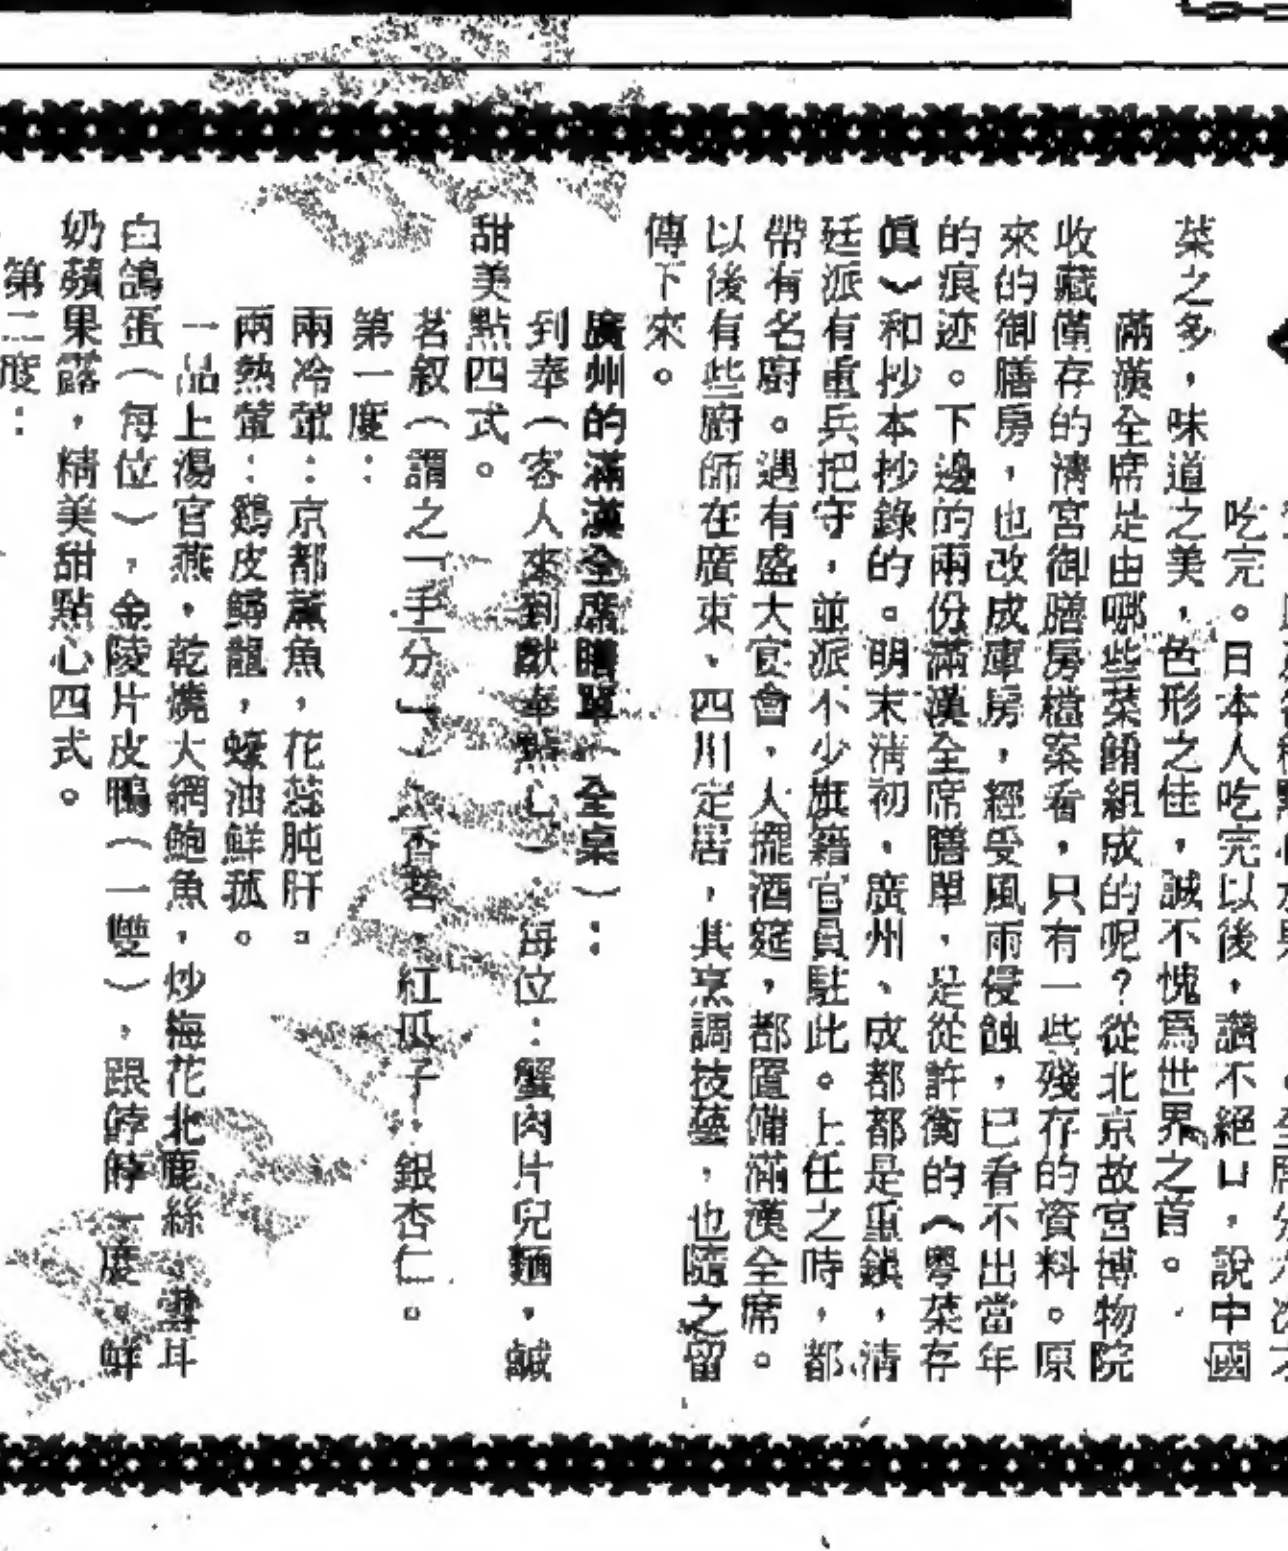 吃完。日本人吃完以後，讚不絕口，說中國
菜之多，味道之美，色形之佳，誠不愧爲世界之首。
滿漢全席是由哪些菜餚組成的呢？從北京故宮博物院
收藏僅存的清宮御膳房檔案看，只有一些殘存的資料。原
來的御膳房，也改成庫房，經受風雨侵蝕，已看不出當年
的痕迹。下邊的兩份滿漢全席膳單，是從許衡的《粵菜存
眞》和抄本抄錄的。明末清初，廣州、成都都是重鎮，清
廷派有重兵把守，並派不少旗籍官員駐此。上任之時，都
帶有名廚。遇有盛大宴會，人擺酒筵，都置備滿漢全席。
以後有些廚師在廣東、四川定居，其烹調技藝，也隨之留
傳下來。
廣州的滿漢全席膳單（全桌）：
到奉（客人來到獻奉點心）：每位：蟹肉片兒麵，鹹
甜美點四式。
茗叙（謂之一手分」）：香茗，紅瓜子，銀杏仁。
第一度：
兩冷葷：京都薰魚，花蕊肫肝。
兩熱葷：鷄皮鱘龍，蠔油鮮菰。
一品上湯官燕，乾燒大網鮑魚，炒梅花北鹿絲，雲耳
白鴿蛋（每位），金陵片皮鴨（一雙），跟餑餑一度。鮮
奶蘋果露，精美甜點心四式。
第二度：